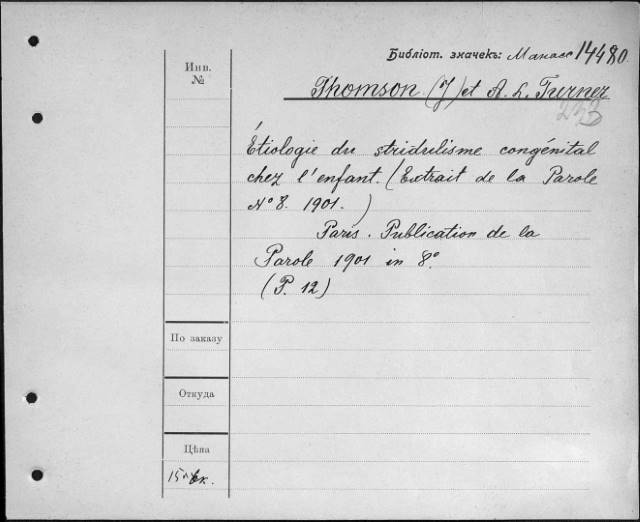 Библіот. значекъ: Манасс 14480.
Инв.
№
Thomson (J) et A. L. Turner
233
Étiologie du stridulisme congénital
chez l'enfant. (Extrait de la Parole
No 8. 1901.)
Paris. Publication de la
Parole 1901 in 8°.
(P. 12)
По заказу
Откуда
Цѣна
15 к.